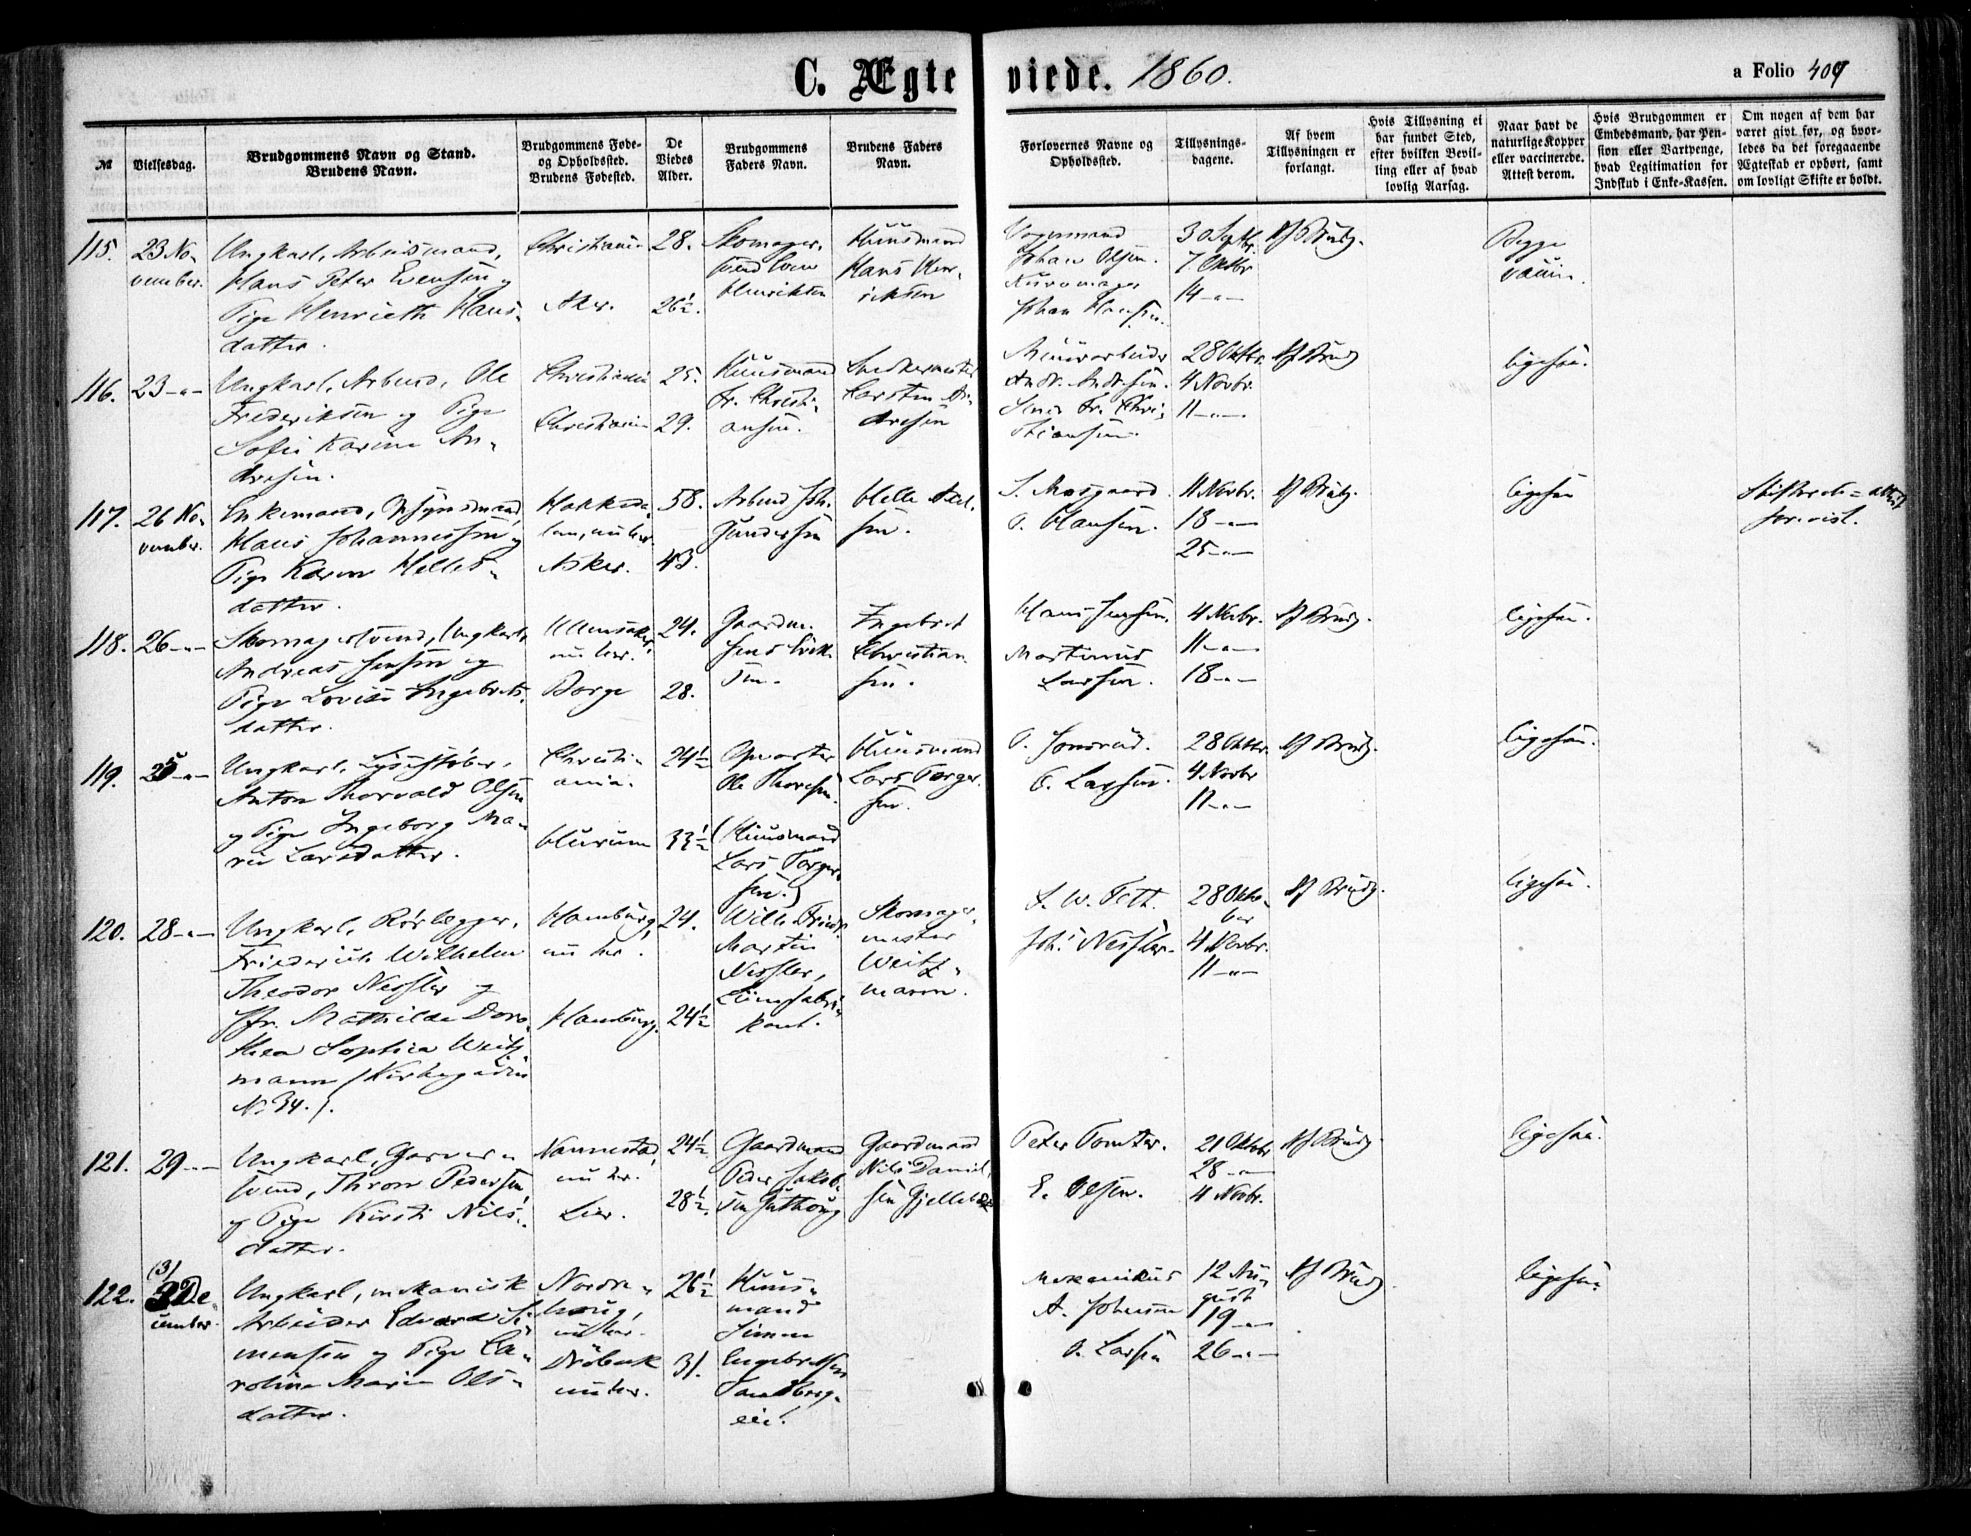 C. Ægteviede. 1860.
a Folio 409
№
Vielsesdag.
Brudgommens Navn og Stand.
Brudens Navn.
Brudgommens Føde-
og Opholdssted.
Brudens Fødested.
De
Viedes
Alder.
Brudgommens
Faders Navn.
Brudens Faders
Navn.
Forlovernes Navne og
Opholdssted.
Tillysnings-
dagene.
Af hvem
Tillysningen er
forlangt.
Hvis Tillysning ei
har fundet Sted,
efter hvilken Bevil-
ling eller af hvad
lovlig Aarsag.
Naar havt de
naturlige Kopper
eller vaccinerede.
Attest derom.
Hvis Brudgommen er
Embedsmand, har Pen-
sion eller Vartpenge,
hvad Legitimation for
Indskud i Enke-Kassen.
Om nogen af dem har
været givt før, og hvor-
ledes da det foregaaende
Ægteskab er ophørt, samt
om lovligt Skifte er holdt.
115.
23 No-
vember.
Ungkarl, Arbeidsmand,
Hans Peter Evensen og
Pige Henriette Hans-
datter.
Christiania
Aker.
28.
26½.
Skomager-
svend Even
Henriksen
Huusmand
Hans Hen-
riksen
Vognmand
Johan Olsen.
Johan Hansen.
30 Septbr.
7 Oktbr.
14 -"-
Af Brudg.
Begge
vaccin.
116.
23 -"-
Ungkarl, Arbeid. Ole
Frederiksen og Pige
Sofie Karine An-
dresen.
Christiania
Christiania
25.
29.
Huusmand
Fr. Christi-
ansen.
Snedkermester
Carsten An-
dresen
Muurarbeider
Andr. Andersen.
Fr. Chri-
stiansen.
28 Oktbr.
4 Novbr.
11 -"-
Af Brudg.
ligesaa.
117.
26 No-
vember.
Enkemand,
Hans Johannessen og
Pige Karen Helles-
datter.
Hakkeda-
len, nu her.
Asker.
58.
43.
Arbeid. Joh.
Gundersen
Helle Axel-
sen.
S. Mosgaard.
O. Hansen.
11 Novbr.
18 -"-
25 -"-
Af Brudg.
ligesaa
Skifteretsattest
forevist.
118.
26 -"-
Skomagersvend, Ungkarl
Andreas Jensen og
Pige Lovise Ingebrets-
datter.
Ullensaker,
nu her.
Borge
24.
28.
Gaardm.
Jens Erik-
sen.
Ingebret
Christian-
sen.
Hans Jensen.
Martinus
Larsen.
4 Novbr.
11 -"-
18 -"-
Af Brudg.
ligesaa.
119.
25 -"-
Ungkarl, Lysestøber,
Anton Thorvald Olsen
og Pige Ingeborg Ma-
rie Larsdatter.
Christi-
ania.
Hurum
24½
33½
Opvarter
Ole Thoresen.
(Huusmand
Lars Torger-
sen.)
Huusmand
Lars Torger-
sen.
O. Jonsrud.
C. Larsen.
28 Oktbr.
4 Novbr.
11 -"-
Af Brudg.
ligesaa.
120.
28 -"-
Ungkarl, Rørlægger,
Friederich Wilhelm
Theodor Nessler og
Jfr. Mathilde Doro-
thea Sophia Weitz-
mann (Kirkegaden
No 34.).
Hamburg,
nu her.
Hamburg.
24.
24½
Wilh. Friedr.
Martin
Nessler,
Liimfabri-
kant.
Skomager-
mester
Weitz-
mann.
F. W. Tett.
Joh. Nessler.
28 Okto-
ber
4 Novbr.
11 -"-
Af Brudg.
ligesaa.
121.
29 -"-
Ungkarl, Garver-
svend, Thron Pedersen
og Pige Kirsti Nils-
datter.
Nannestad,
nu her.
Lier.
24½
28½.
Gaardmand
Peder Jakob-
sen
Gaardmand
Nils Daniel-
sen Gjellebæk
Peter Tomter.
E. Olsen.
21 Oktobr.
28 -"-
4 Novbr.
Af Brudg.
ligesaa.
122.
(3)
3 De-
cember.
Ungkarl, mekanisk
Arbeider Edvard Si-
mensen og Pige Ca-
roline Marie Ols-
datter.
Nordre-
houg,
nu her.
Drøbak
nu her.
26½
31.
Huus-
mand
Simen
Engebretsen
Tandberg-
eie.
Mekanikus
A. Johnsen
O. Larsen
12 Au-
gust
19 -"-
26 -"-
Af Brudg.
ligesaa